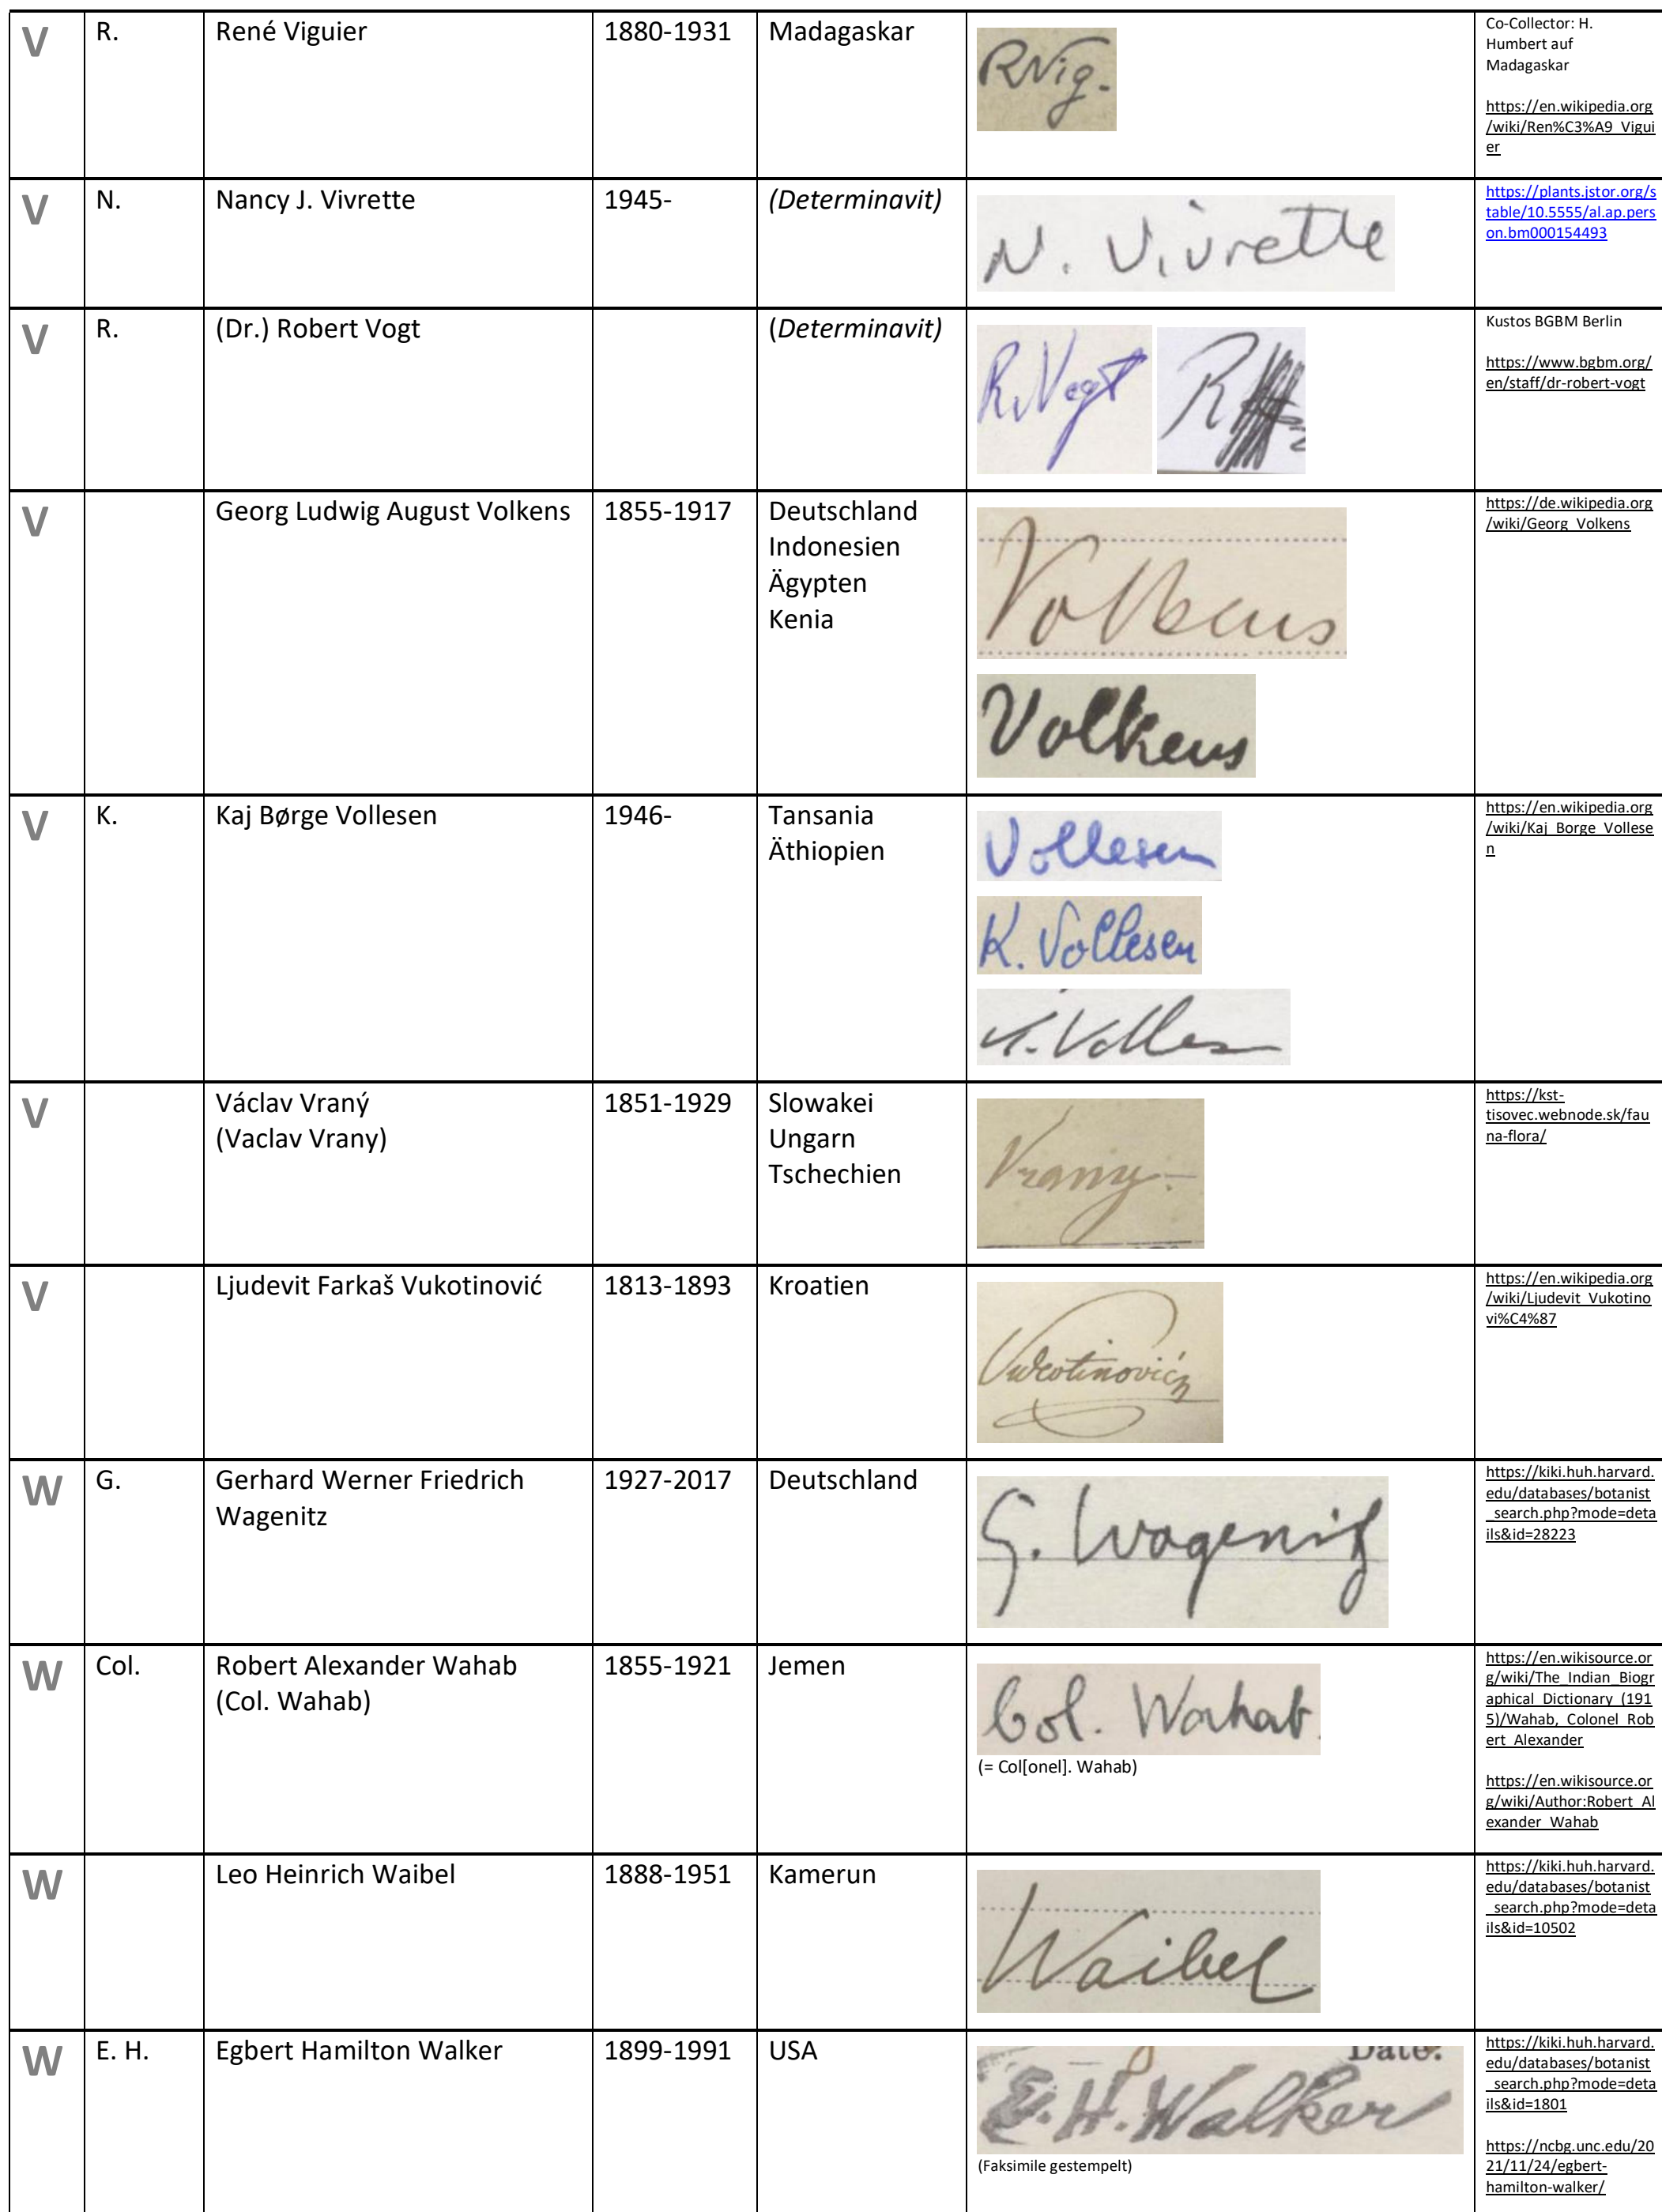 V
R.
René Viguier
1880-1931
Madagaskar
RVig.
Co-Collector: H.
Humbert auf
Madagaskar
https://en.wikipedia.org
/wiki/Ren%C3%A9_Vigui
er
V
N.
Nancy J. Vivrette
1945-
(Determinavit)
N. Vivrette
https://plants.jstor.org/s
table/10.5555/al.ap.pers
on.bm000154493
V
R.
(Dr.) Robert Vogt
(Determinavit)
R. Vogt
Kustos BGBM Berlin
https://www.bgbm.org/
en/staff/dr-robert-vogt
V
Georg Ludwig August Volkens
1855-1917
Deutschland
Indonesien
Ägypten
Kenia
Volkens
Volkens
https://de.wikipedia.org
/wiki/Georg_Volkens
V
K.
Kaj Børge Vollesen
1946-
Tansania
Äthiopien
Vollesen
K. Vollesen
K. Volles
https://en.wikipedia.org
/wiki/Kaj_Borge_Vollese
n
V
Václav Vraný
(Vaclav Vrany)
1851-1929
Slowakei
Ungarn
Tschechien
Vraný.
https://kst-
tisovec.webnode.sk/fau
na-flora/
V
Ljudevit Farkaš Vukotinović
1813-1893
Kroatien
Vukotinović
https://en.wikipedia.org
/wiki/Ljudevit_Vukotino
vi%C4%87
W
G.
Gerhard Werner Friedrich
Wagenitz
1927-2017
Deutschland
G. Wagenitz
https://kiki.huh.harvard.
edu/databases/botanist
_search.php?mode=deta
ils&id=28223
W
Col.
Robert Alexander Wahab
(Col. Wahab)
1855-1921
Jemen
Col. Wahab.
(= Col[onel]. Wahab)
https://en.wikisource.or
g/wiki/The_Indian_Biogr
aphical_Dictionary_(191
5)/Wahab,_Colonel_Rob
ert_Alexander
https://en.wikisource.or
g/wiki/Author:Robert_Al
exander_Wahab
W
Leo Heinrich Waibel
1888-1951
Kamerun
Waibel
https://kiki.huh.harvard.
edu/databases/botanist
_search.php?mode=deta
ils&id=10502
W
E. H.
Egbert Hamilton Walker
1899-1991
USA
Date:
E. H. Walker
(Faksimile gestempelt)
https://kiki.huh.harvard.
edu/databases/botanist
_search.php?mode=deta
ils&id=1801
https://ncbg.unc.edu/20
21/11/24/egbert-
hamilton-walker/